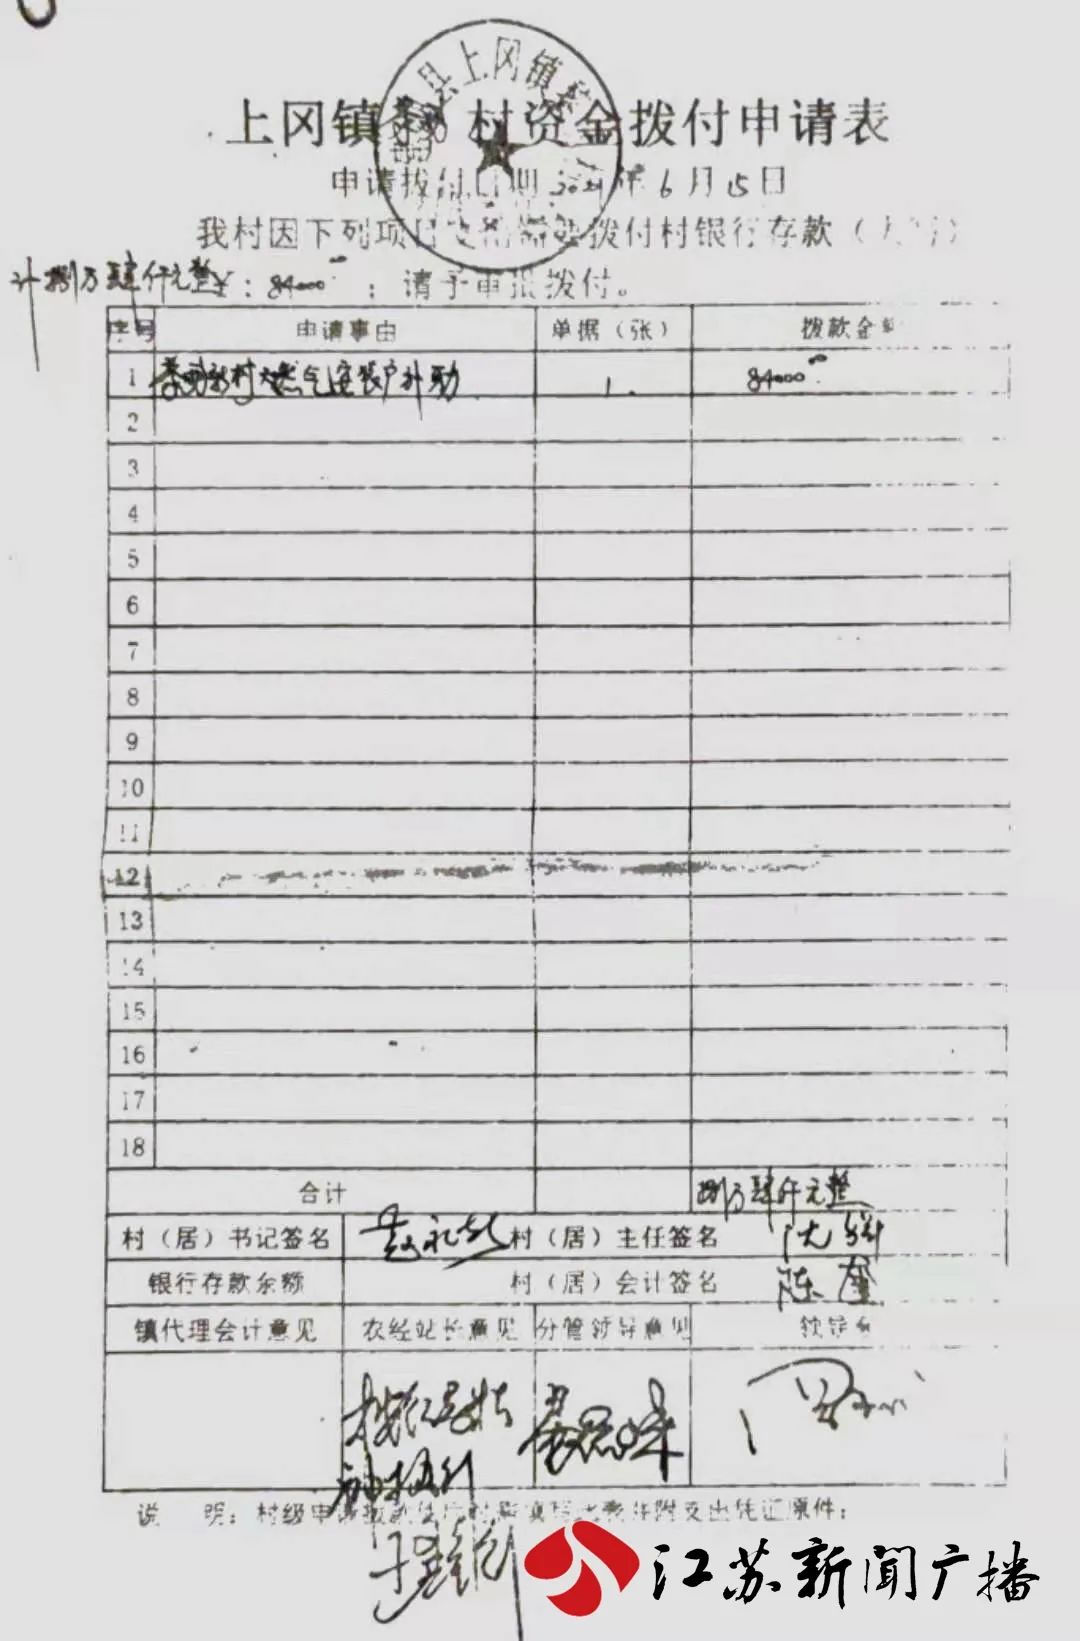 县上冈镇
上冈镇 村资金拨付申请表
申请拨付日期 2021年6月15日
我村因下列项 拨付村银行存款（大写）
计捌万肆仟元整 ¥：84000 ；请予审批拨付。
序号 申请事由 单据（张） 拨款金额
1 新村天然气安装户补助 1. 84000
2
3
4
5
6
7
8
9
10
11
12
13
14
15
16
17
18
合计 捌万肆仟元整
村（居）书记签名 村（居）主任签名
银行存款余额 村（居）会计签名 陈奎
镇代理会计意见 农经站长意见 分管领导意见
说 明：村级申请拨 附支出凭证原件；
江苏新闻广播